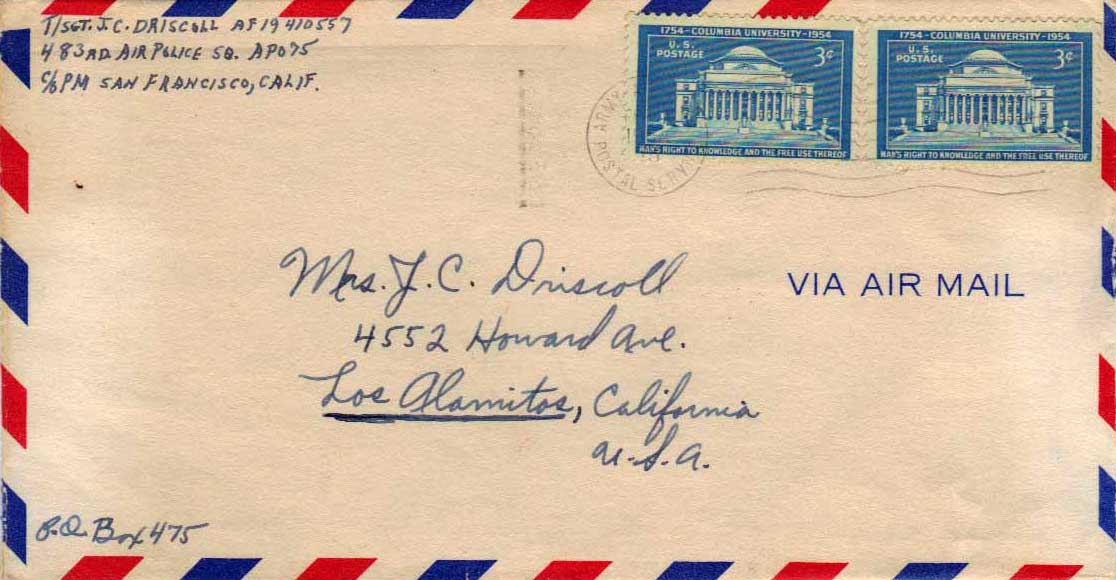 T/SGT. J.C. DRISCOLL AF 19410557
483RD AIR POLICE SQ. APO 75
C/O PM SAN FRANCISCO, CALIF.
1754 - COLUMBIA UNIVERSITY - 1954
U.S. POSTAGE
3¢
MAN'S RIGHT TO KNOWLEDGE AND THE FREE USE THEREOF
1754 - COLUMBIA UNIVERSITY - 1954
U.S. POSTAGE
3¢
MAN'S RIGHT TO KNOWLEDGE AND THE FREE USE THEREOF
ARMY
POSTAL SERVICE
Mrs. J. C. Driscoll
4552 Howard Ave.
Los Alamitos, California
U.S.A.
VIA AIR MAIL
P.O. Box 475